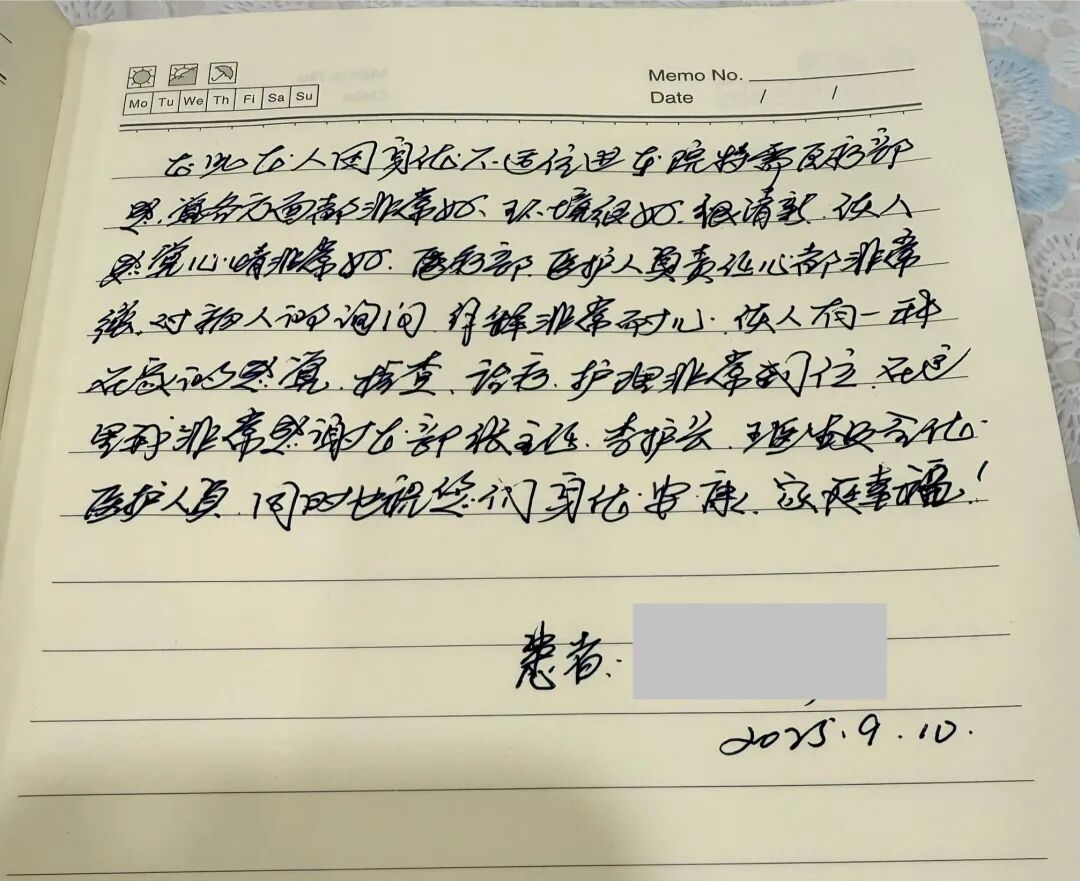 Memo No.
Date / /
Mo Tu We Th Fi Sa Su
人因身体不适住进本院特需医疗部
感觉各方面都非常好、环境很好、很清新、使人
感觉心情非常好、医疗部、医护人员责任心都非常
强、对病人的询问、讲解非常耐心、使人有一种
在家的感觉、检查、诊疗、护理非常到位、在这
里我非常感谢 部张主任、李护长、王医生及全体
医护人员、同时也祝您们身体安康、家庭幸福！
患者:
2025.9.10.